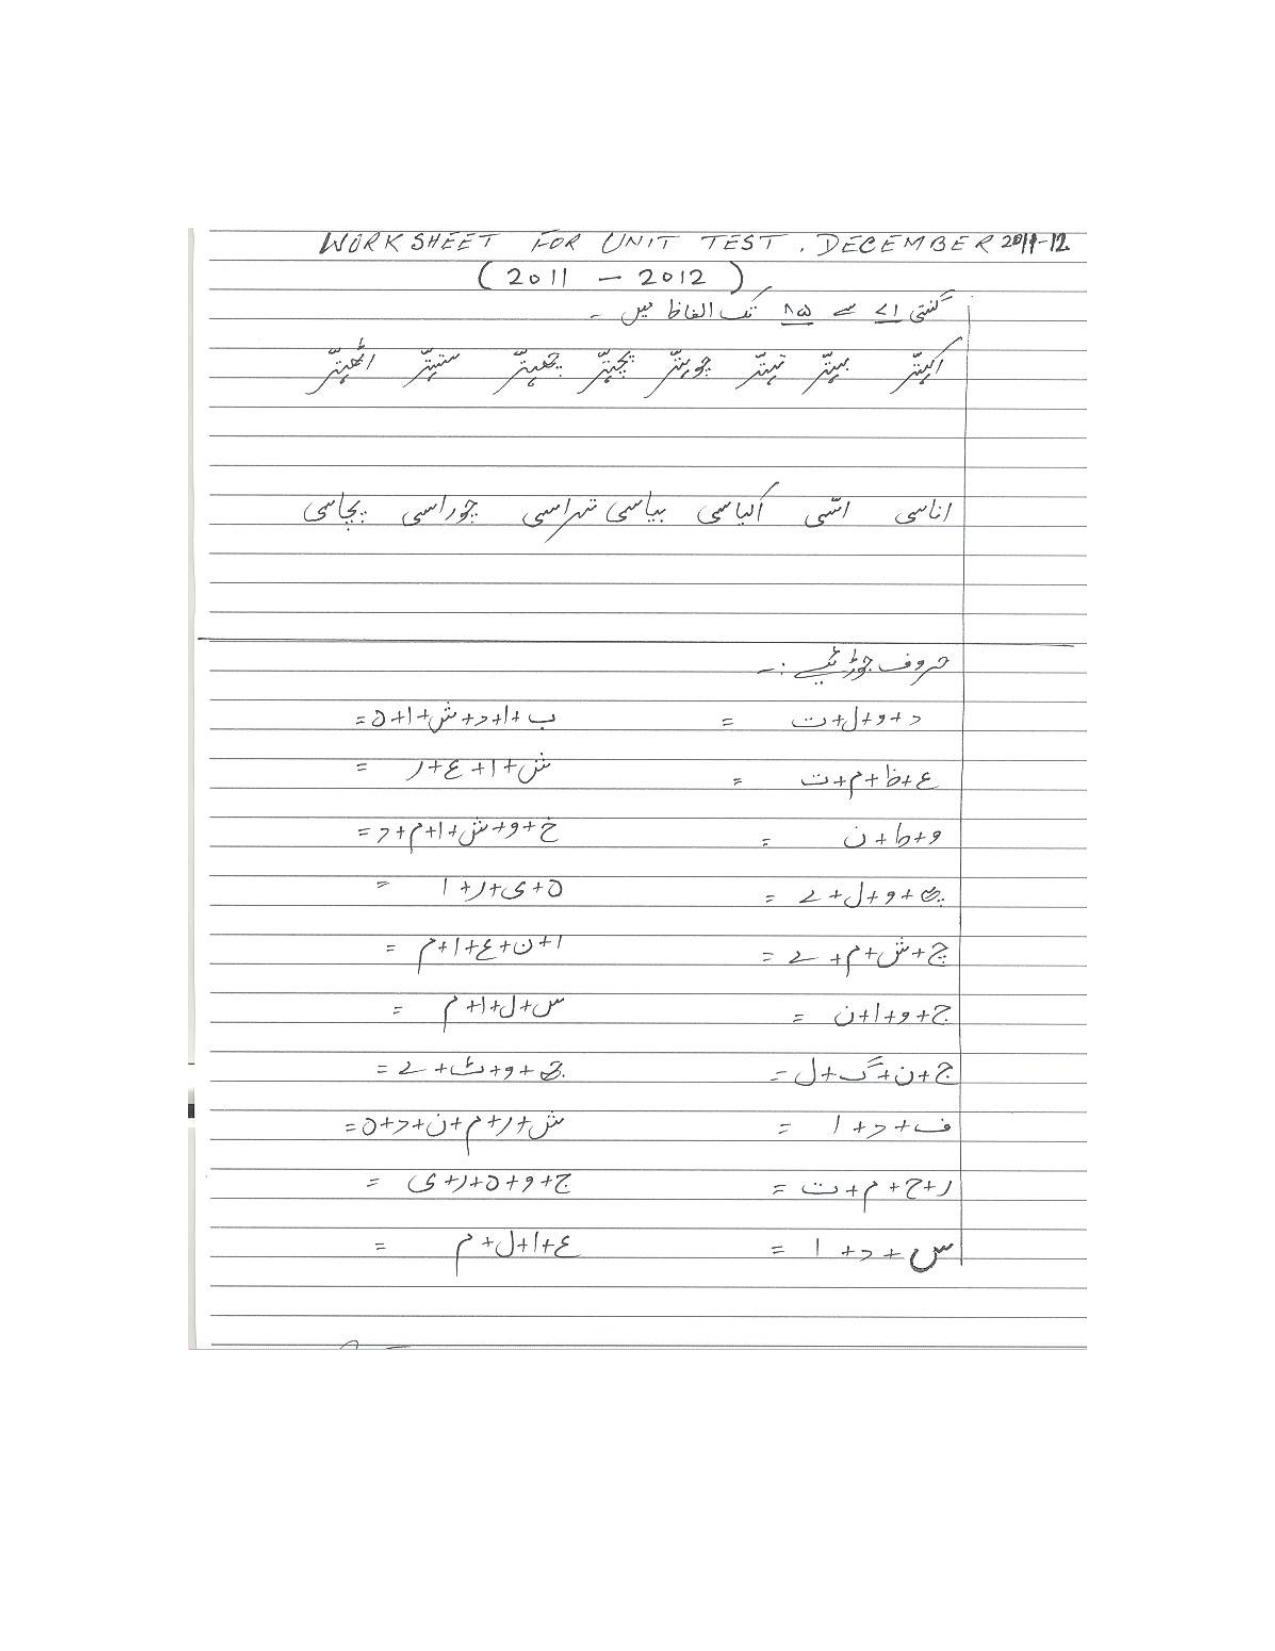 WORKSHEET FOR UNIT TEST. DECEMBER 2011-12
(2011 - 2012)
گنتی ۷۱ سے ۸۵ تک الفاظ میں ۔
اکہتّر بہتّر تہتّر چوہتّر پچہتّر چھہتّر ستہتّر اٹھہتّر
اناسی اسّی اکیاسی بیاسی تہراسی چوراسی پچاسی
حروف جوڑئیے :۔
د+و+ل+ت = ب+ا+د+ش+ا+ہ=
ع+ظ+م+ت = ش+ا+ع+ر =
و+ط+ن = خ+و+ش+ا+م+د=
پھ+و+ل+ے = ہ+ی+ر+ا =
چ+ش+م+ے = ا+ن+ع+ا+م =
ج+و+ا+ن = س+ل+ا+م =
ج+ن+گ+ل= چھ+و+ٹ+ے=
ف+د+ا = ش+ر+م+ن+د+ہ=
ر+ح+م+ت = ج+و+ہ+ر+ی =
س+د+ا = ع+ا+ل+م =